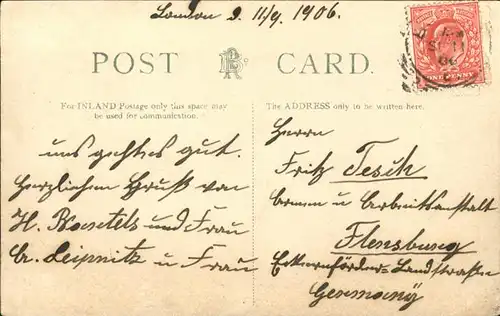 London d. 11/9. 1906.
POST CARD.
For INLAND Postage only this space may
be used for communication.
The ADDRESS only to be written here.
uns geht es gut.
Herzlichen Gruß von
H. Bartels und Frau
Leipnitz u Frau
Herrn
Fritz Tesch
Armen u Arbeitsanstalt
Flensburg
Eckernförder-Landstraße
Germany
ONE PENNY